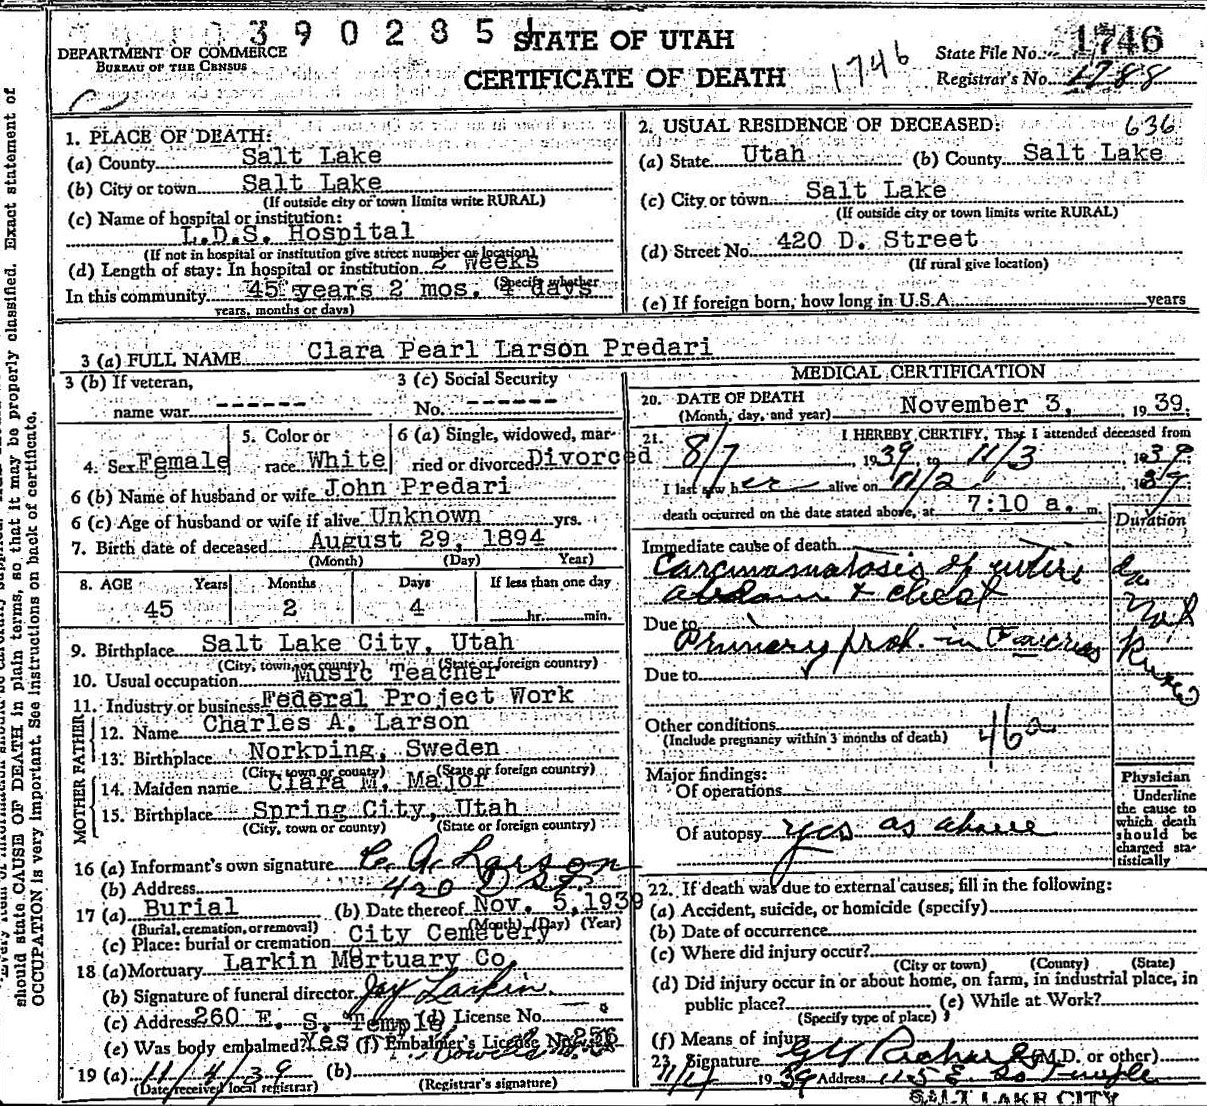 3 9 0 2 8 5 1 STATE OF UTAH 1746
DEPARTMENT OF COMMERCE State File No.
BUREAU OF THE CENSUS CERTIFICATE OF DEATH 1746 Registrar's No. 1788
1. PLACE OF DEATH:
(a) County Salt Lake
(b) City or town Salt Lake
(If outside city or town limits write RURAL)
(c) Name of hospital or institution:
L.D.S. Hospital
(If not in hospital or institution give street number or location)
(d) Length of stay: In hospital or institution 2 weeks
(Specify whether
In this community 45 years 2 mos. 4 days
years, months or days)
2. USUAL RESIDENCE OF DECEASED: 636
(a) State Utah (b) County Salt Lake
(c) City or town Salt Lake
(If outside city or town limits write RURAL)
(d) Street No. 420 D. Street
(If rural give location)
(e) If foreign born, how long in U.S.A. years
3 (a) FULL NAME Clara Pearl Larson Predari
3 (b) If veteran, 3 (c) Social Security
name war ------ No. ------
4. Sex Female 5. Color or race White 6 (a) Single, widowed, married or divorced Divorced
6 (b) Name of husband or wife John Predari
6 (c) Age of husband or wife if alive Unknown yrs.
7. Birth date of deceased August 29, 1894
(Month) (Day) Year)
8. AGE Years Months Days If less than one day
45 2 4 hr. min.
9. Birthplace Salt Lake City, Utah
(City, town, or county) (State or foreign country)
10. Usual occupation Music Teacher
11. Industry or business Federal Project Work
FATHER
12. Name Charles A. Larson
13. Birthplace Norkping, Sweden
(City, town or county) (State or foreign country)
MOTHER
14. Maiden name Clara M. Major
15. Birthplace Spring City, Utah
(City, town or county) (State or foreign country)
16 (a) Informant's own signature C. A. Larson
(b) Address 420 D St.
17 (a) Burial (b) Date thereof Nov. 5, 1939
(Burial, cremation, or removal) (Month) (Day) (Year)
(c) Place: burial or cremation City Cemetery
18 (a) Mortuary Larkin Mortuary Co.
(b) Signature of funeral director Jay Larkin
(c) Address 260 E. S. Temple (d) License No.
(e) Was body embalmed? Yes (f) Embalmer's License No. 256
19 (a) 11/4/39 (b)
(Date received local registrar) (Registrar's signature)
MEDICAL CERTIFICATION
20. DATE OF DEATH
(Month, day, and year) November 3, 1939.
21. I HEREBY CERTIFY, That I attended deceased from
8/7, 1939 to 11/3, 1939
I last saw her alive on 11/2, 1939
death occurred on the date stated above, at 7:10 a. m.
Duration
Immediate cause of death
Carcinomatosis of entire
abdomen & chest
Due to
Primary prob. in Pancreas
Due to
Other conditions 46a
(Include pregnancy within 3 months of death)
Major findings:
Of operations
Of autopsy yes as above
Physician
Underline
the cause to
which death
should be
charged sta-
tistically
22. If death was due to external causes, fill in the following:
(a) Accident, suicide, or homicide (specify)
(b) Date of occurrence
(c) Where did injury occur?
(City or town) (County) (State)
(d) Did injury occur in or about home, on farm, in industrial place, in
public place? (e) While at Work?
(Specify type of place)
(f) Means of injury
23. Signature G. G. Richards (M.D. or other)
1939 Address 115 E. So Temple
SALT LAKE CITY
should state CAUSE OF DEATH in plain terms, so that it may be properly classified. Exact statement of
OCCUPATION is very important. See instructions on back of certificate.